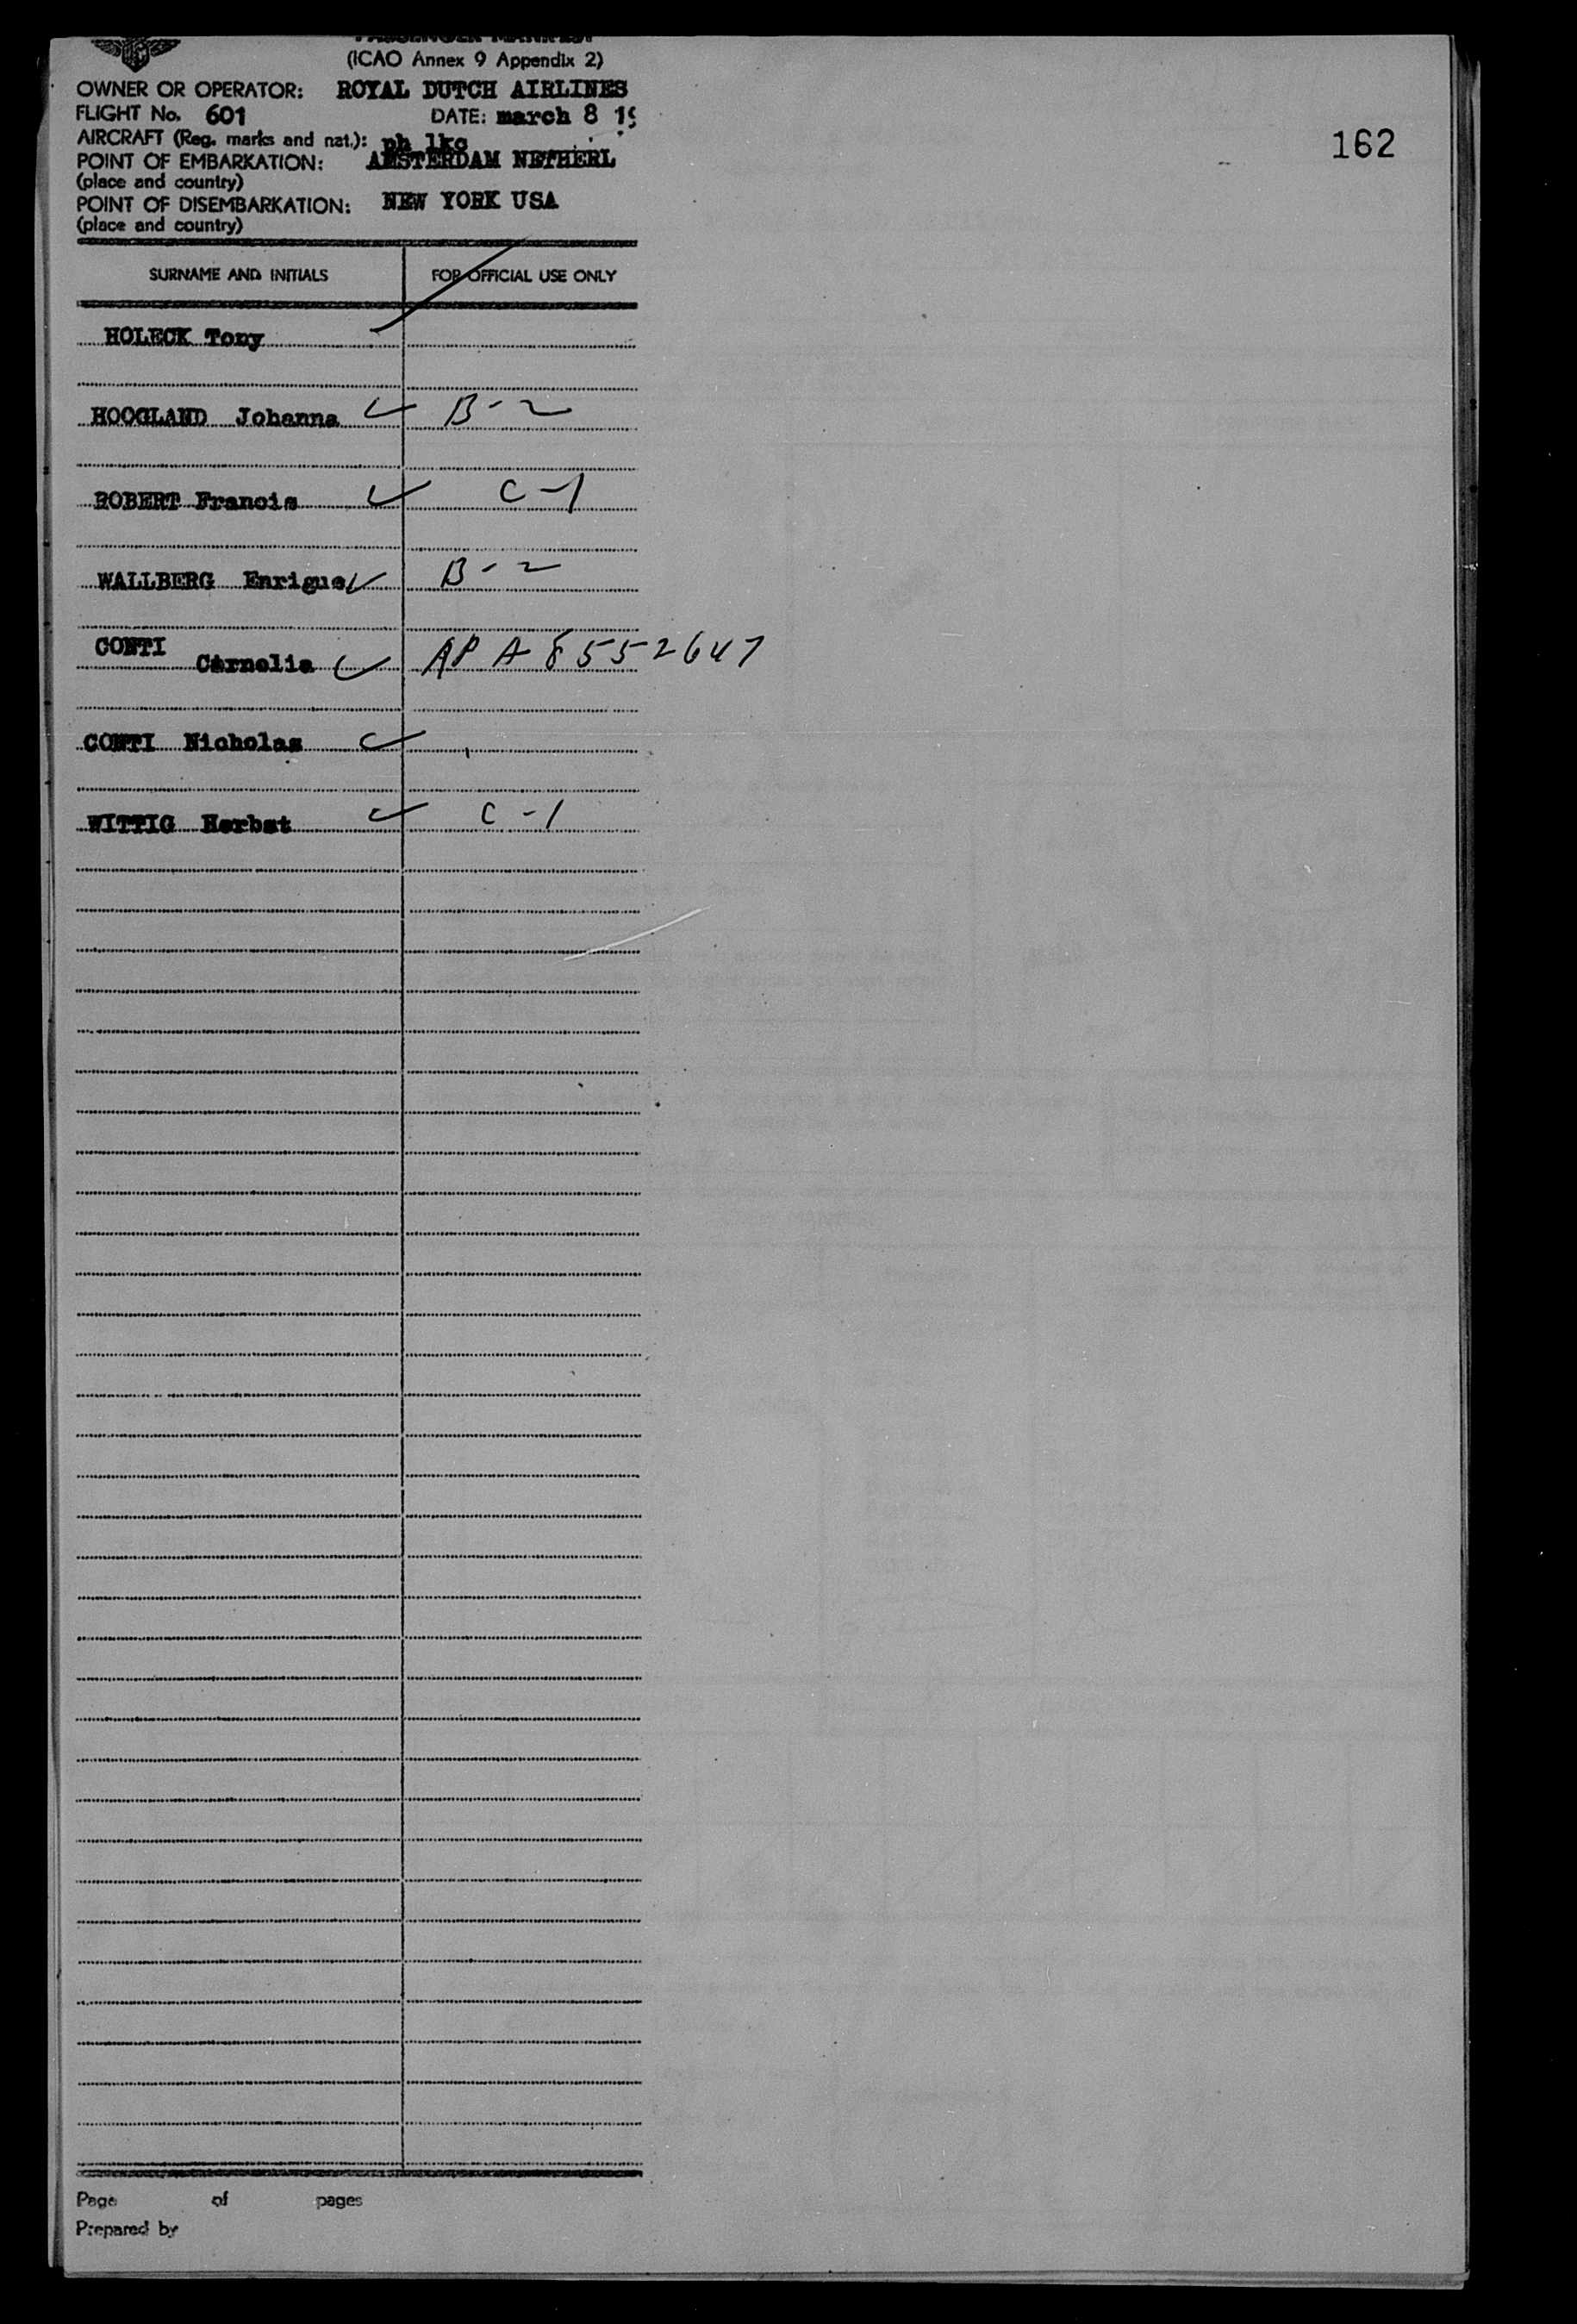 PASSENGER MANIFEST
(ICAO Annex 9 Appendix 2)
OWNER OR OPERATOR: ROYAL DUTCH AIRLINES
FLIGHT No. 601 DATE: march 8 19
AIRCRAFT (Reg. marks and nat.): ph lkc
162
POINT OF EMBARKATION: AMSTERDAM NETHERL
(place and country)
POINT OF DISEMBARKATION: NEW YORK USA
(place and country)
SURNAME AND INITIALS FOR OFFICIAL USE ONLY
HOLECK Tony
HOOGLAND Johanna B-2
ROBERT Francis C-1
WALLBERG Enrique B-2
CONTI
Cornelia AP A 8552647
CONTI Nicholas
WITTIG Herbat C-1
Page of pages
Prepared by